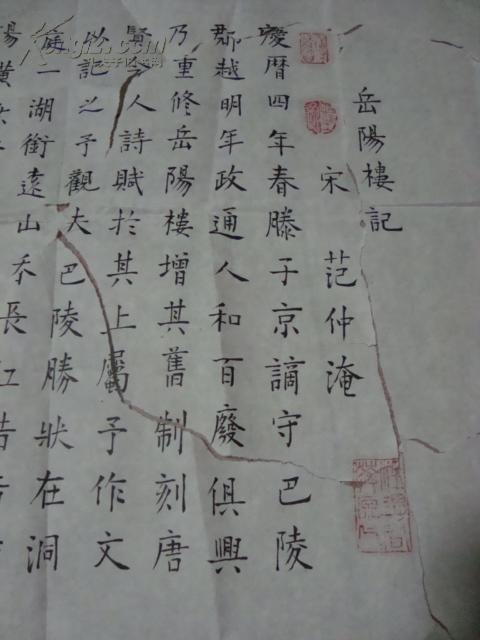 岳陽樓記
宋 范仲淹
慶曆四年春滕子京謫守巴陵
郡越明年政通人和百廢俱興
乃重修岳陽樓增其舊制刻唐
賢今人詩賦於其上屬予作文
以記之予觀夫巴陵勝狀在洞
庭一湖銜遠山吞長江